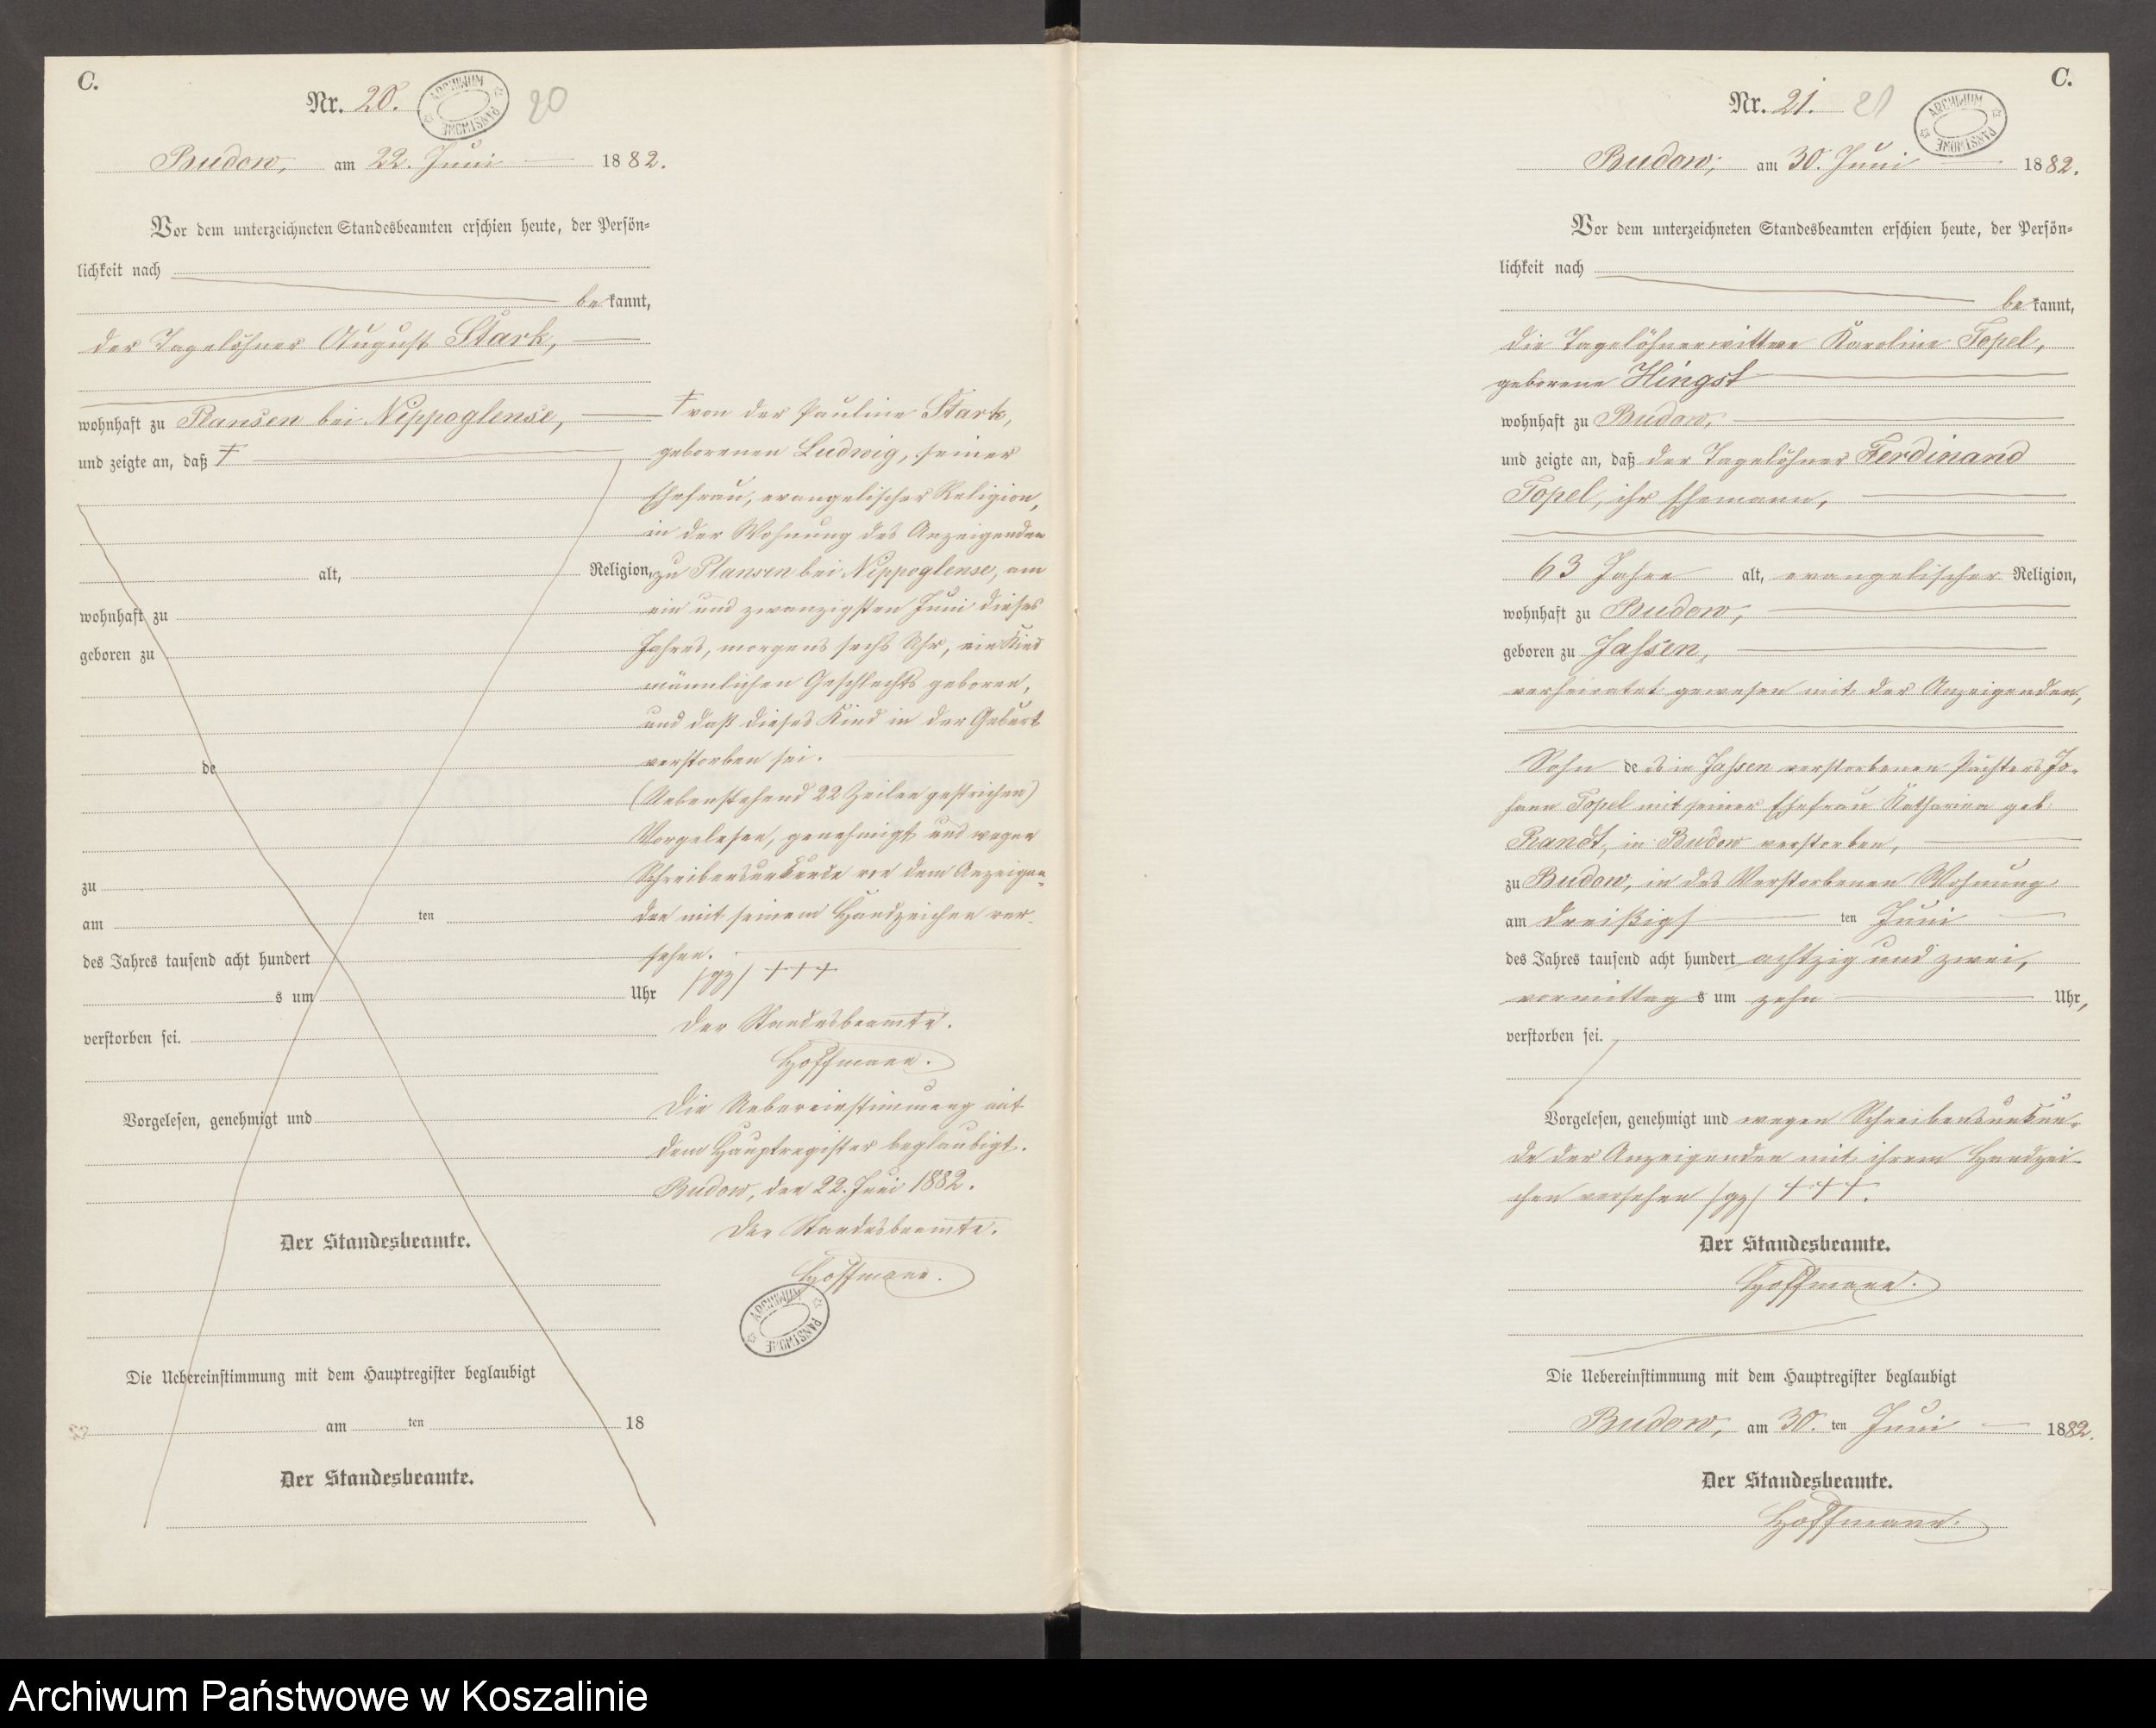 C.
Nr. 20.
20
ARCHIWUM PAŃSTWOWE
Budow, am 22. Juni 1882.
Vor dem unterzeichneten Standesbeamten erschien heute, der Persön=
lichkeit nach
bekannt,
der Tagelöhner August Stark,
wohnhaft zu Plansen bei Nippoglense,
und zeigte an, daß ‡
alt, Religion,
wohnhaft zu
geboren zu
de
zu
am ten
des Jahres tausend acht hundert
s um Uhr
verstorben sei.
Vorgelesen, genehmigt und
Der Standesbeamte.
Die Uebereinstimmung mit dem Hauptregister beglaubigt
am ten 18
Der Standesbeamte.
‡ von der Pauline Stark,
geborenen Ludwig, seiner
Ehefrau, evangelischer Religion,
in der Wohnung des Anzeigenden
zu Plansen bei Nippoglense, am
ein und zwanzigsten Juni dieses
Jahres, morgens sechs Uhr, ein Kind
männlichen Geschlechts geboren,
und daß dieses Kind in der Geburt
verstorben sei.
(Nebenstehend 22 Zeilen gestrichen)
Vorgelesen, genehmigt und wegen
Schreibensunkunde von dem Anzeigen=
den mit seinem Handzeichen ver-
sehen.
/gz/ +++
Der Standesbeamte.
Hoffmann.
Die Uebereinstimmung mit
dem Hauptregister beglaubigt.
Budow, den 22. Juni 1882.
Der Standesbeamte.
Hoffmann.
ARCHIWUM PAŃSTWOWE
C.
Nr. 21.
21
ARCHIWUM PAŃSTWOWE
Budow, am 30. Juni 1882.
Vor dem unterzeichneten Standesbeamten erschien heute, der Persön=
lichkeit nach
bekannt,
die Tagelöhnerwittwe Karoline Topel,
geborene Hingst
wohnhaft zu Budow,
und zeigte an, daß der Tagelöhner Ferdinand
Topel, ihr Ehemann,
63 Jahre alt, evangelischer Religion,
wohnhaft zu Budow,
geboren zu Jassen,
verheiratet gewesen mit der Anzeigenden,
Sohn des in Jassen verstorbenen Pächters Jo-
hann Topel mit seiner Ehefrau Katharina geb.
Randt, in Budow verstorben,
zu Budow, in des Verstorbenen Wohnung
am dreißigsten Juni
des Jahres tausend acht hundert achtzig und zwei,
vormittags um zehn Uhr,
verstorben sei.
Vorgelesen, genehmigt und wegen Schreibensunkun-
de der Anzeigenden mit ihrem Handzei-
chen versehen /gz/ +++.
Der Standesbeamte.
Hoffmann.
Die Uebereinstimmung mit dem Hauptregister beglaubigt
Budow, am 30. ten Juni 1882.
Der Standesbeamte.
Hoffmann.
Archiwum Państwowe w Koszalinie